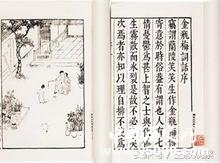 金瓶梅詞話序
竊謂蘭陵笑笑生作金瓶梅傳
寄意於時俗蓋有謂也人有七
情憂鬱爲甚上智之士與化俱
生霧散而氷裂是故不必
次焉者亦知以理自排不